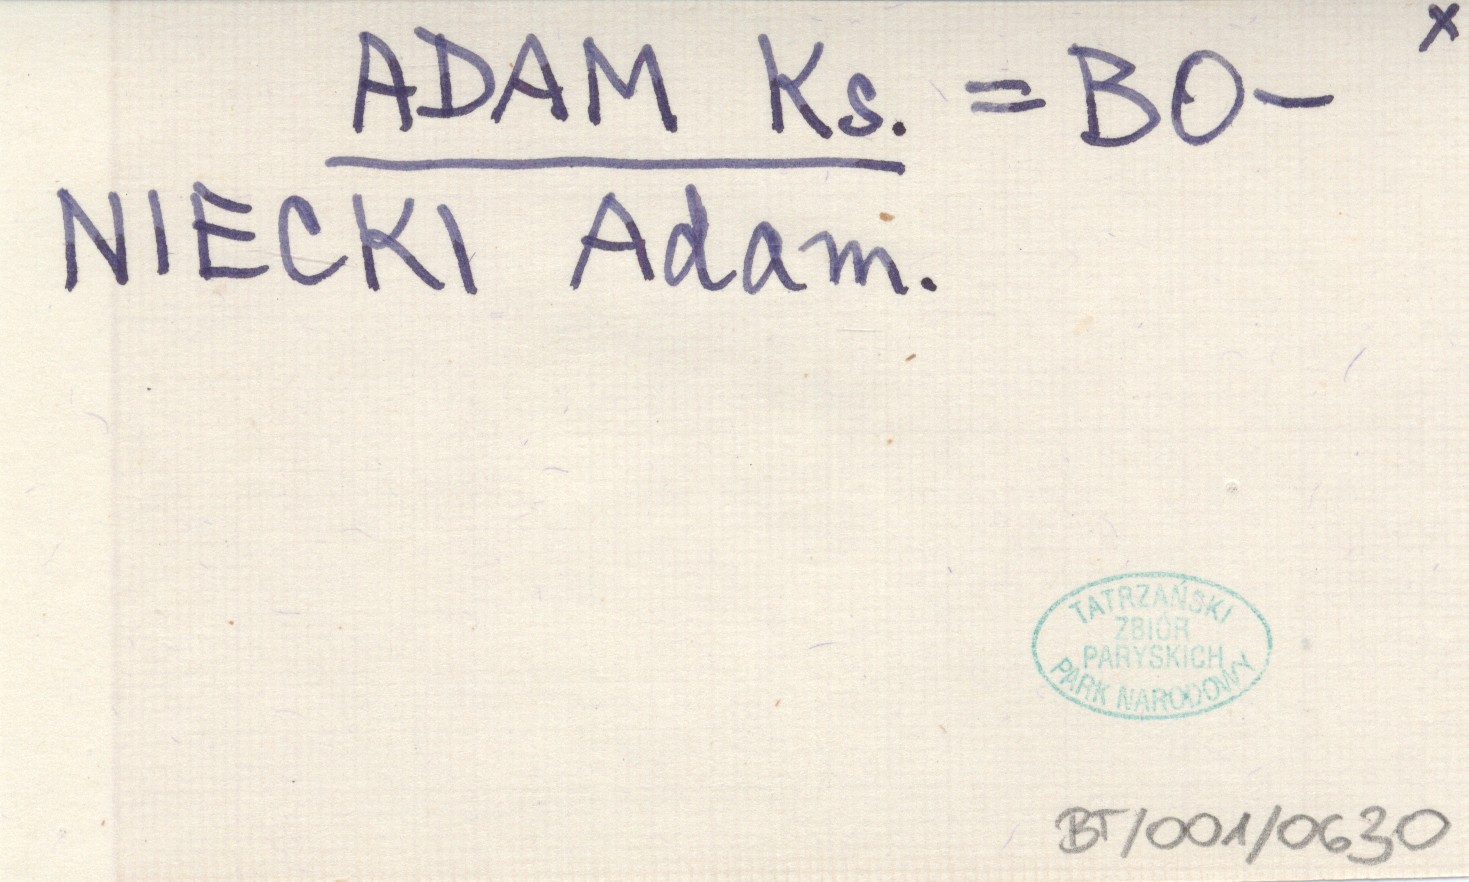 x
ADAM Ks. = BO-
NIECKI Adam.
TATRZAŃSKI
ZBIÓR
PARYSKICH
PARK NARODOWY
BT/001/0630